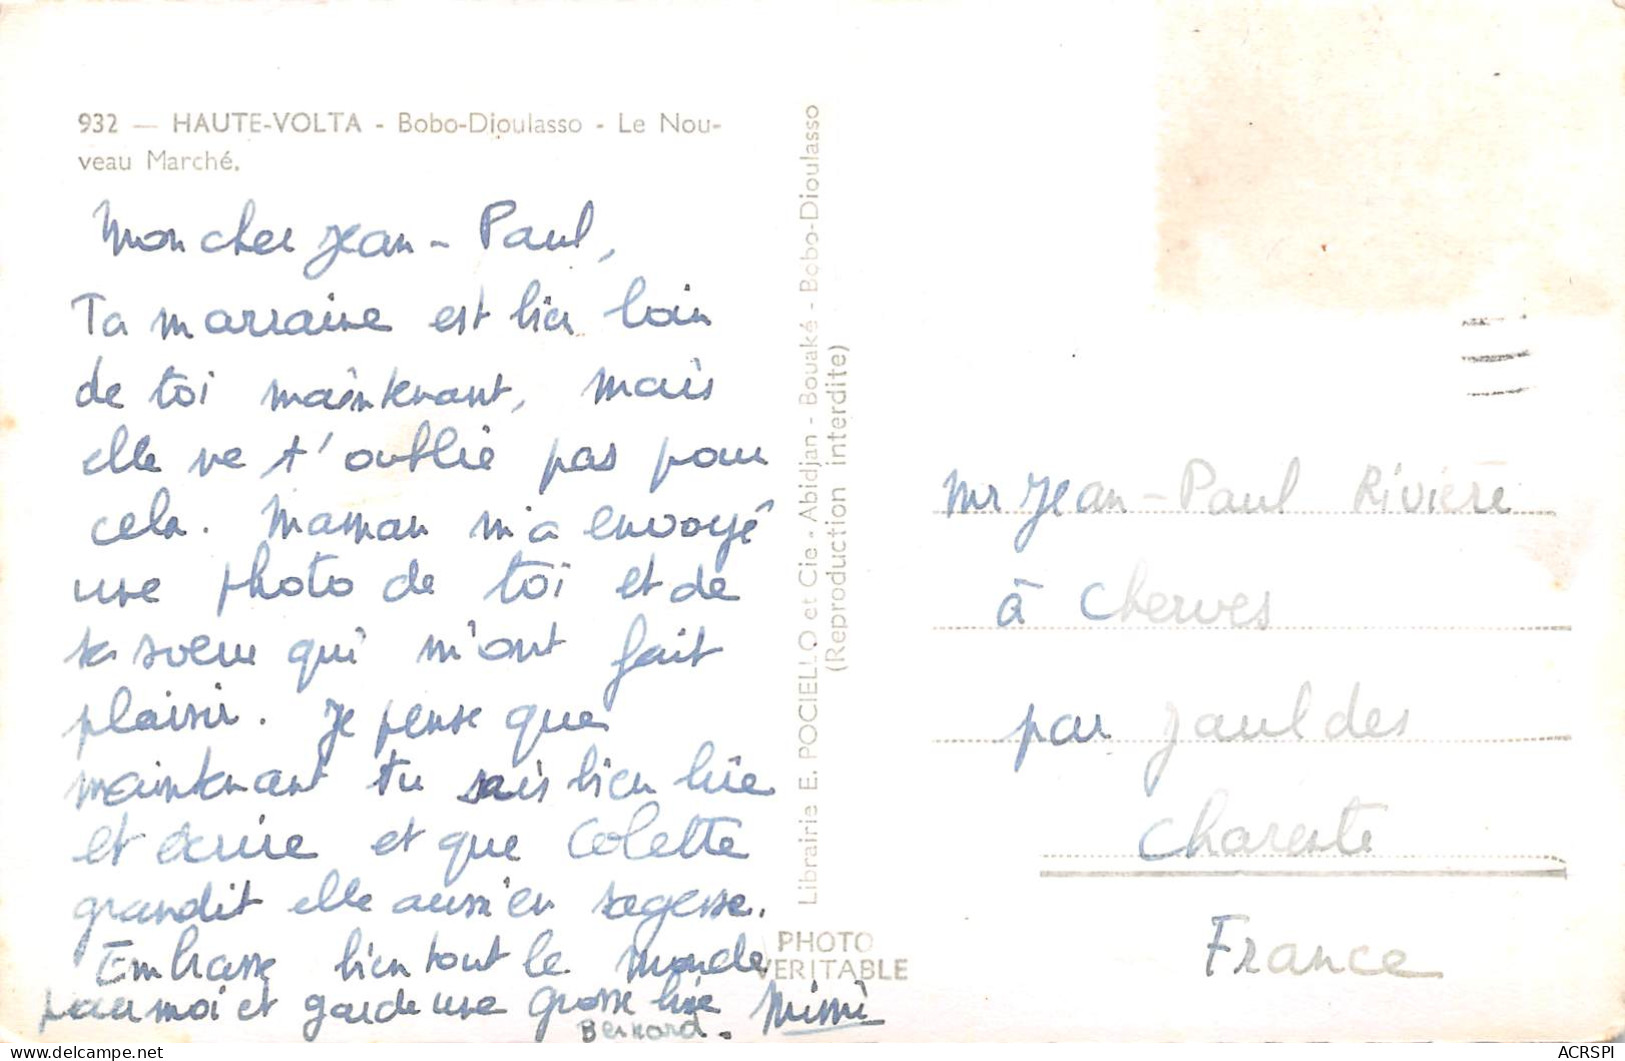 932 — HAUTE-VOLTA - Bobo-Dioulasso - Le Nou-
veau Marché.
Mon cher Jean-Paul,
Ta marraine est bien loin
de toi maintenant, mais
elle ne t'oublie pas pour
cela. Maman m'a envoyé
une photo de toi et de
ta soeur qui m'ont fait
plaisir. Je pense que
maintenant tu sais bien lire
et écrire et que Colette
grandit elle aussi en sagesse.
Embrasse bien tout le monde
pour moi et garde une grosse bise
Mimi
Bernard.
Librairie E. POCIELLO et Cie - Abidjan - Bouaké - Bobo-Dioulasso
(Reproduction interdite)
PHOTO
VERITABLE
Mr Jean-Paul Rivière
à Cherves
par Jauldes
Charente
France
ACRSPI